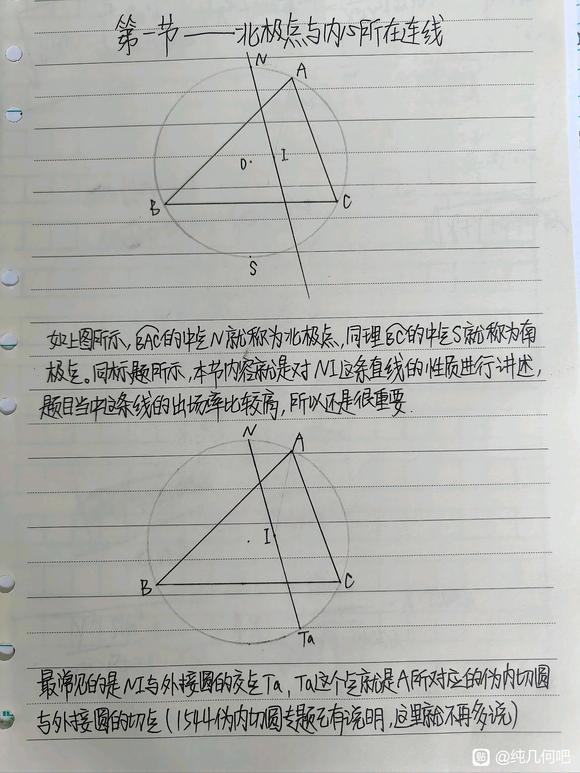 第一节——北极点与内心所在连线
N
A
O
I
B
C
S
如上图所示,BAC的中点N就称为北极点,同理BC的中点S就称为南
极点。同标题所示,本节内容就是对NI这条直线的性质进行讲述,
题目当中这条线的出场率比较高,所以还是很重要.
N
A
I
B
C
Ta
最常见的是NI与外接圆的交点Ta,Ta这个点就是A所对应的伪内切圆
与外接圆的切点(1544伪内切圆专题已有说明,这里就不再多说)
贴 @纯几何吧